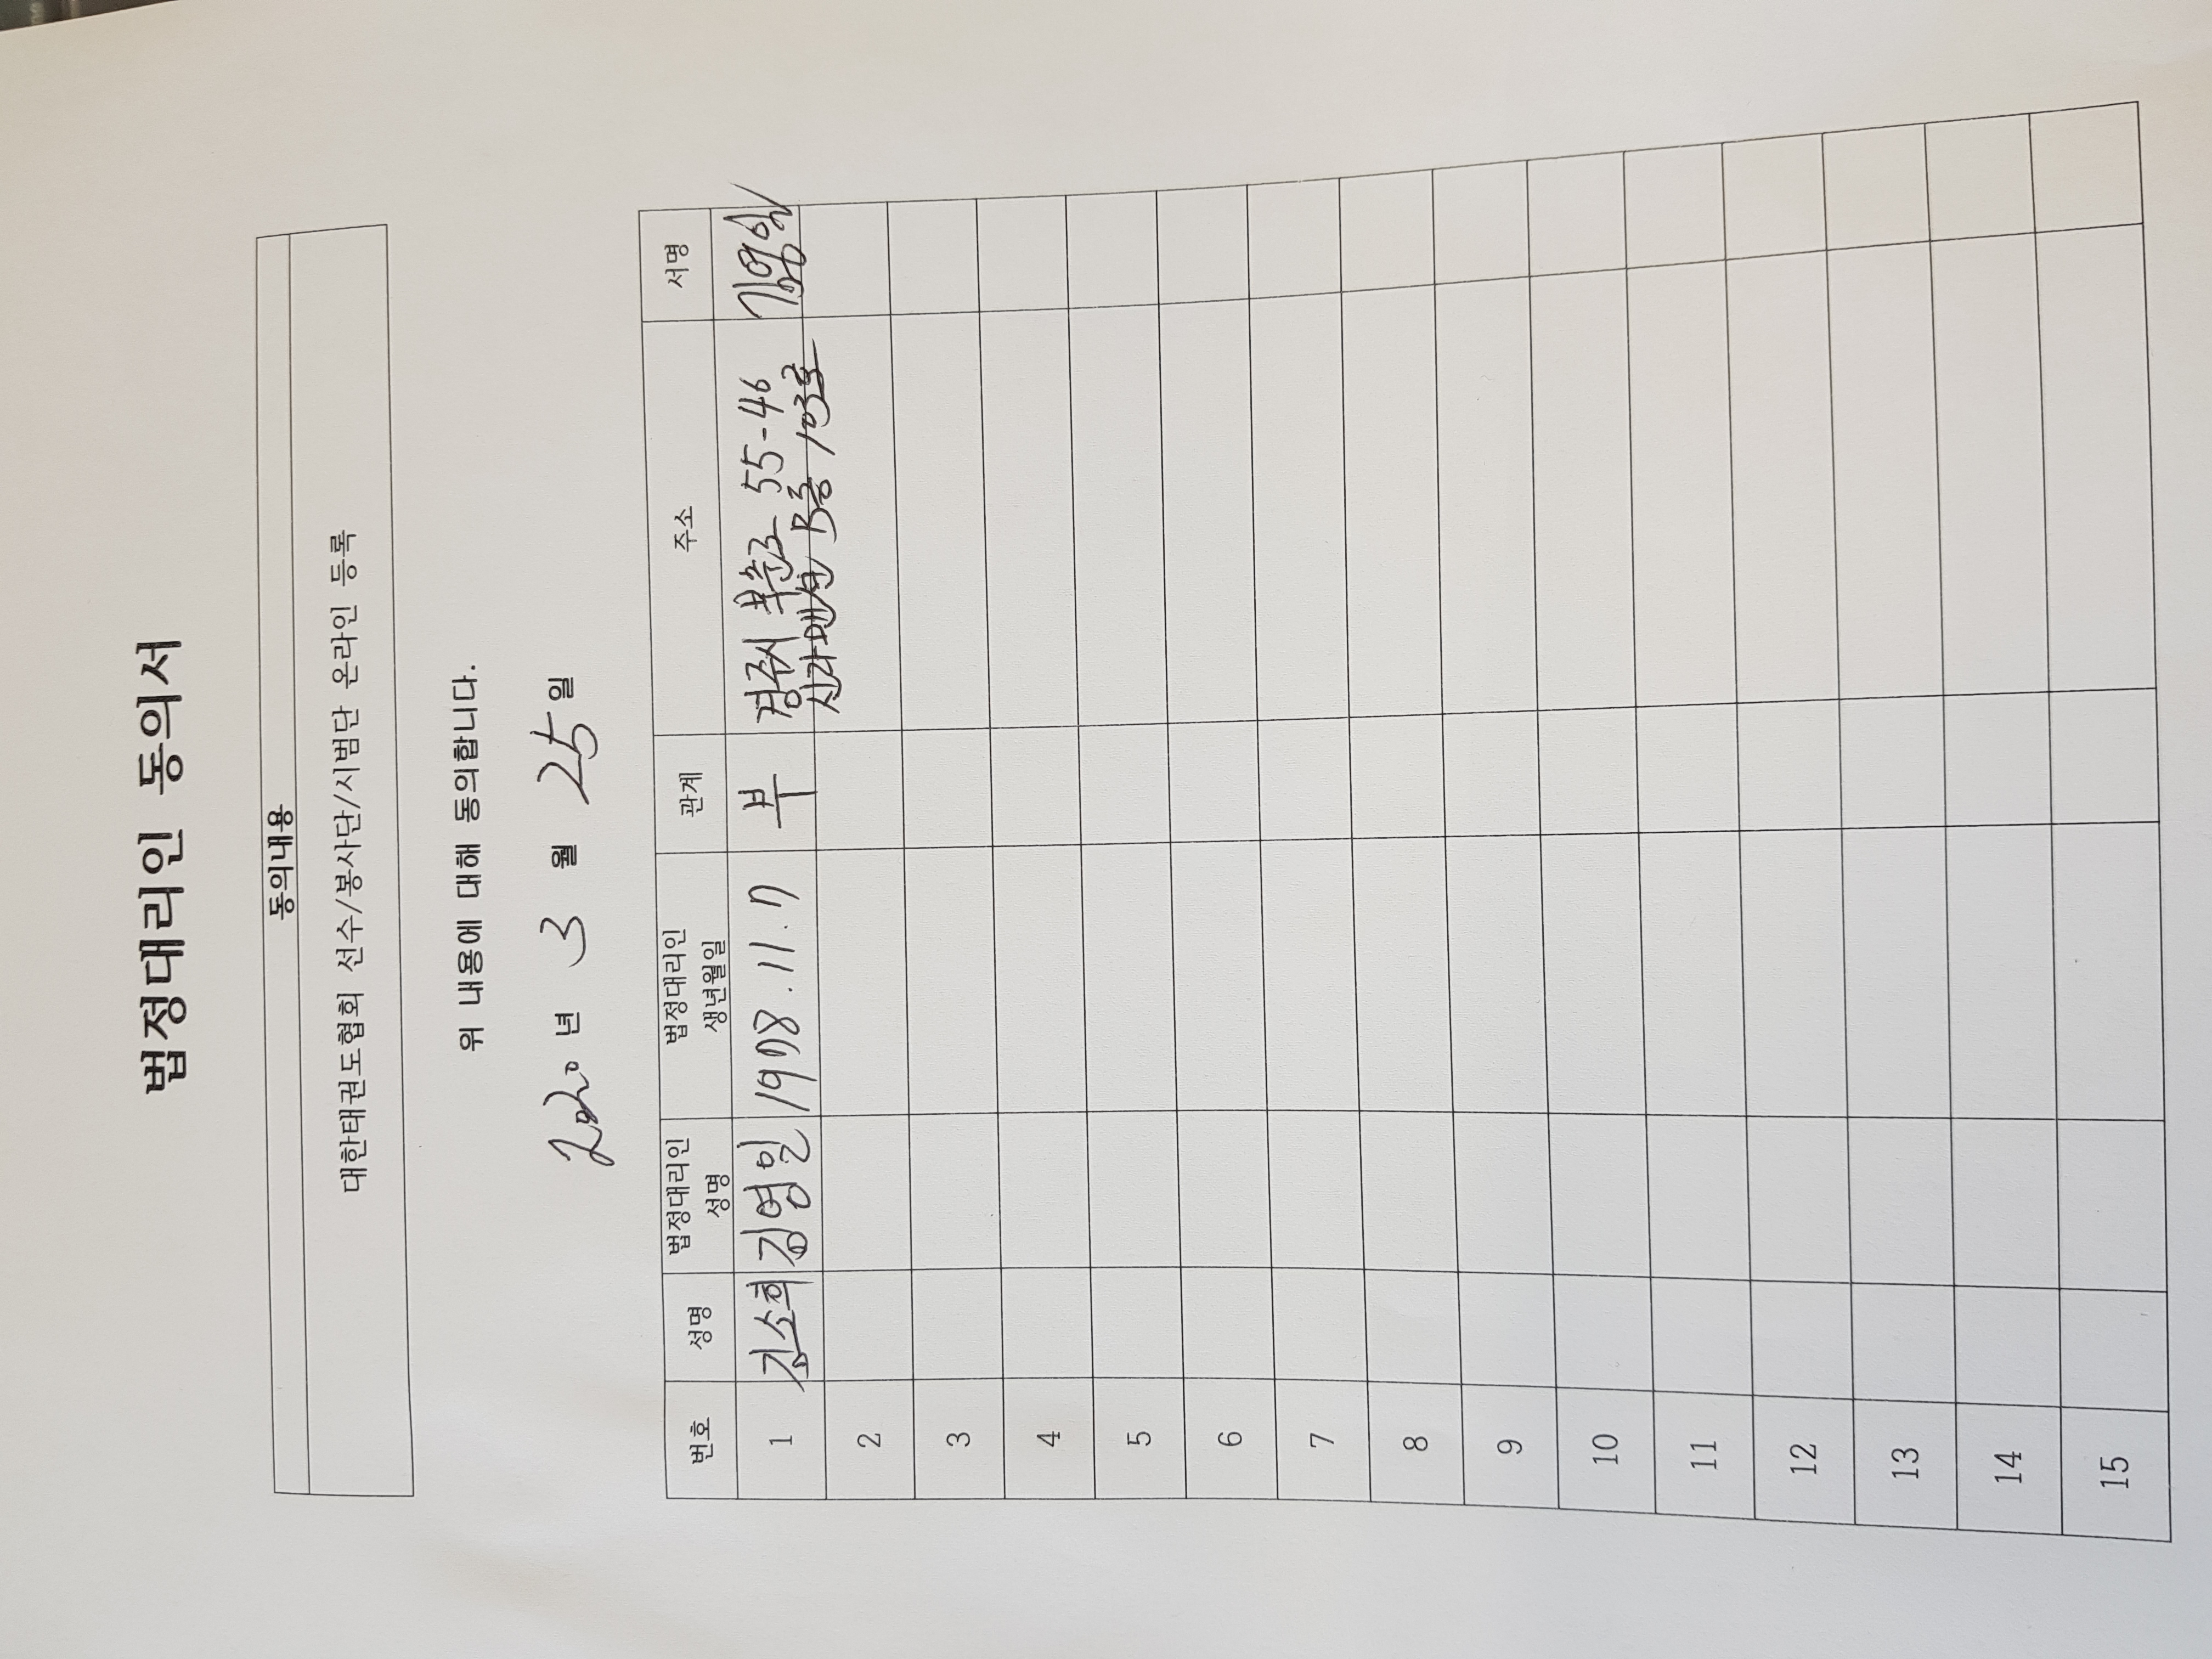 법정대리인 동의서
동의내용
대한태권도협회 선수/봉사단/시범단 온라인 등록
위 내용에 대해 동의합니다.
2020년 3월 25일
번호 성명 법정대리인 성명 법정대리인 생년월일 관계 주소 서명
1 김소희 김영일 1978.11.7 부 경주시 55-46 김영일
신라맨션 B동 103호
2
3
4
5
6
7
8
9
10
11
12
13
14
15